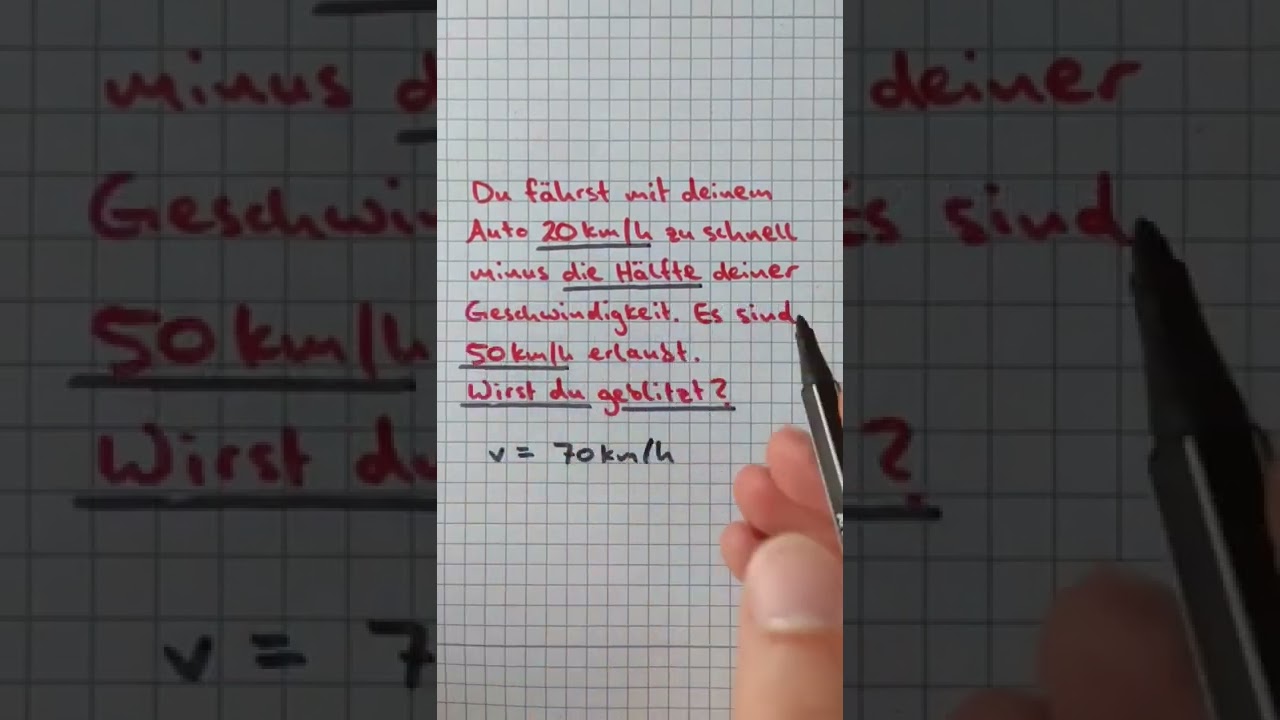 Du fährst mit deinem
Auto 20 km/h zu schnell
minus die Hälfte deiner
Geschwindigkeit. Es sind
50 km/h erlaubt.
Wirst du geblitzt?
v = 70 km/h